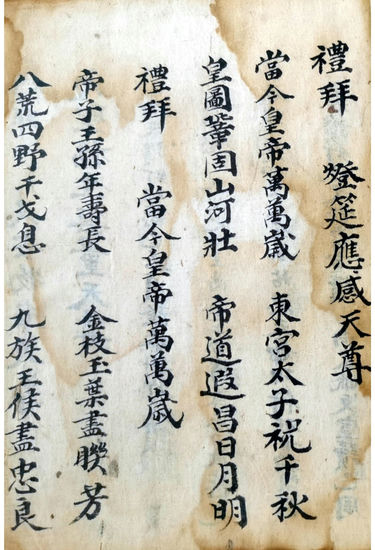 禮拜　燈筵應感天尊
當今皇帝萬萬歲　東宮太子祝千秋
皇圖鞏固山河壯　帝道遐昌日月明
禮拜　當今皇帝萬萬歲
帝子王孫年壽長　金枝玉葉盡聯芳
八荒四野干戈息　九族王侯盡忠良